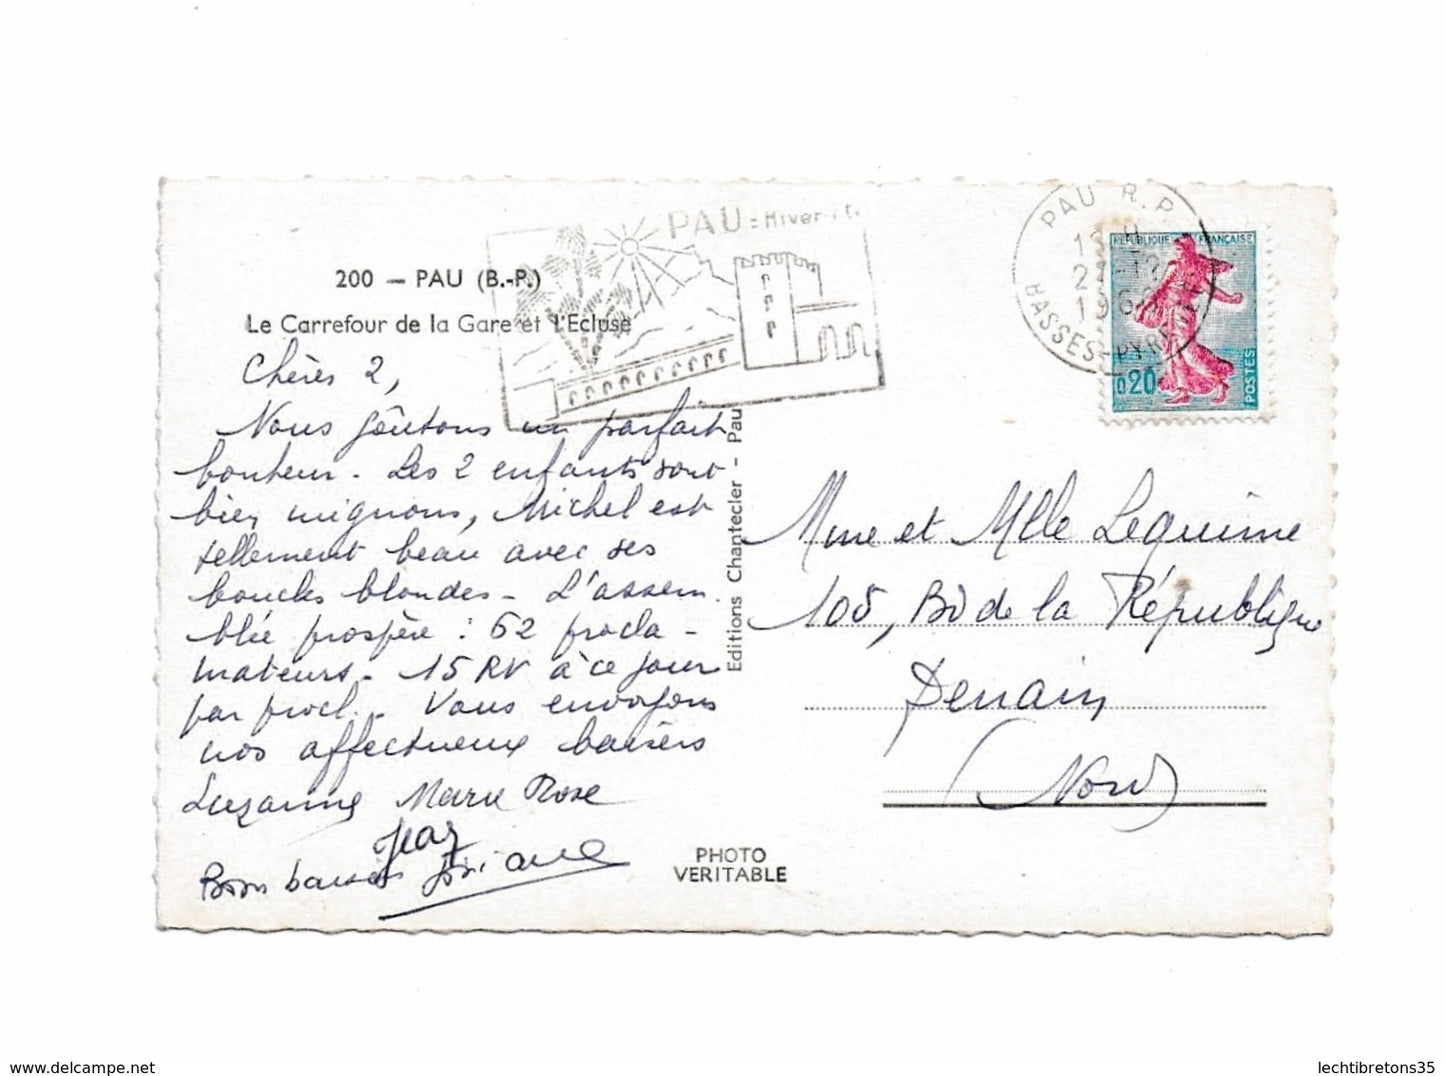 200 — PAU (B.-P.)
Le Carrefour de la Gare et l'Ecluse
PAU = Hiver
PAU R.P.
BASSES-PYRENEES
RÉPUBLIQUE FRANÇAISE
0,20
POSTES
Chères 2,
Nous goûtons un parfait
bonheur - Les 2 enfants sont
bien mignons, Michel est
tellement beau avec ses
boucles blondes - L'assem
blée prospère : 62 procla -
mateurs - 15 RV à ce jour
par procl. - Vous envoyons
nos affectueux baisers
Suzanne Marie Rose
Jean
Bons baisers
Editions Chantecler - Pau
Mme et Mlle Lequime
105, Bd de la République
Denain
(Nord)
PHOTO
VERITABLE
www.delcampe.net
lechtibretons35